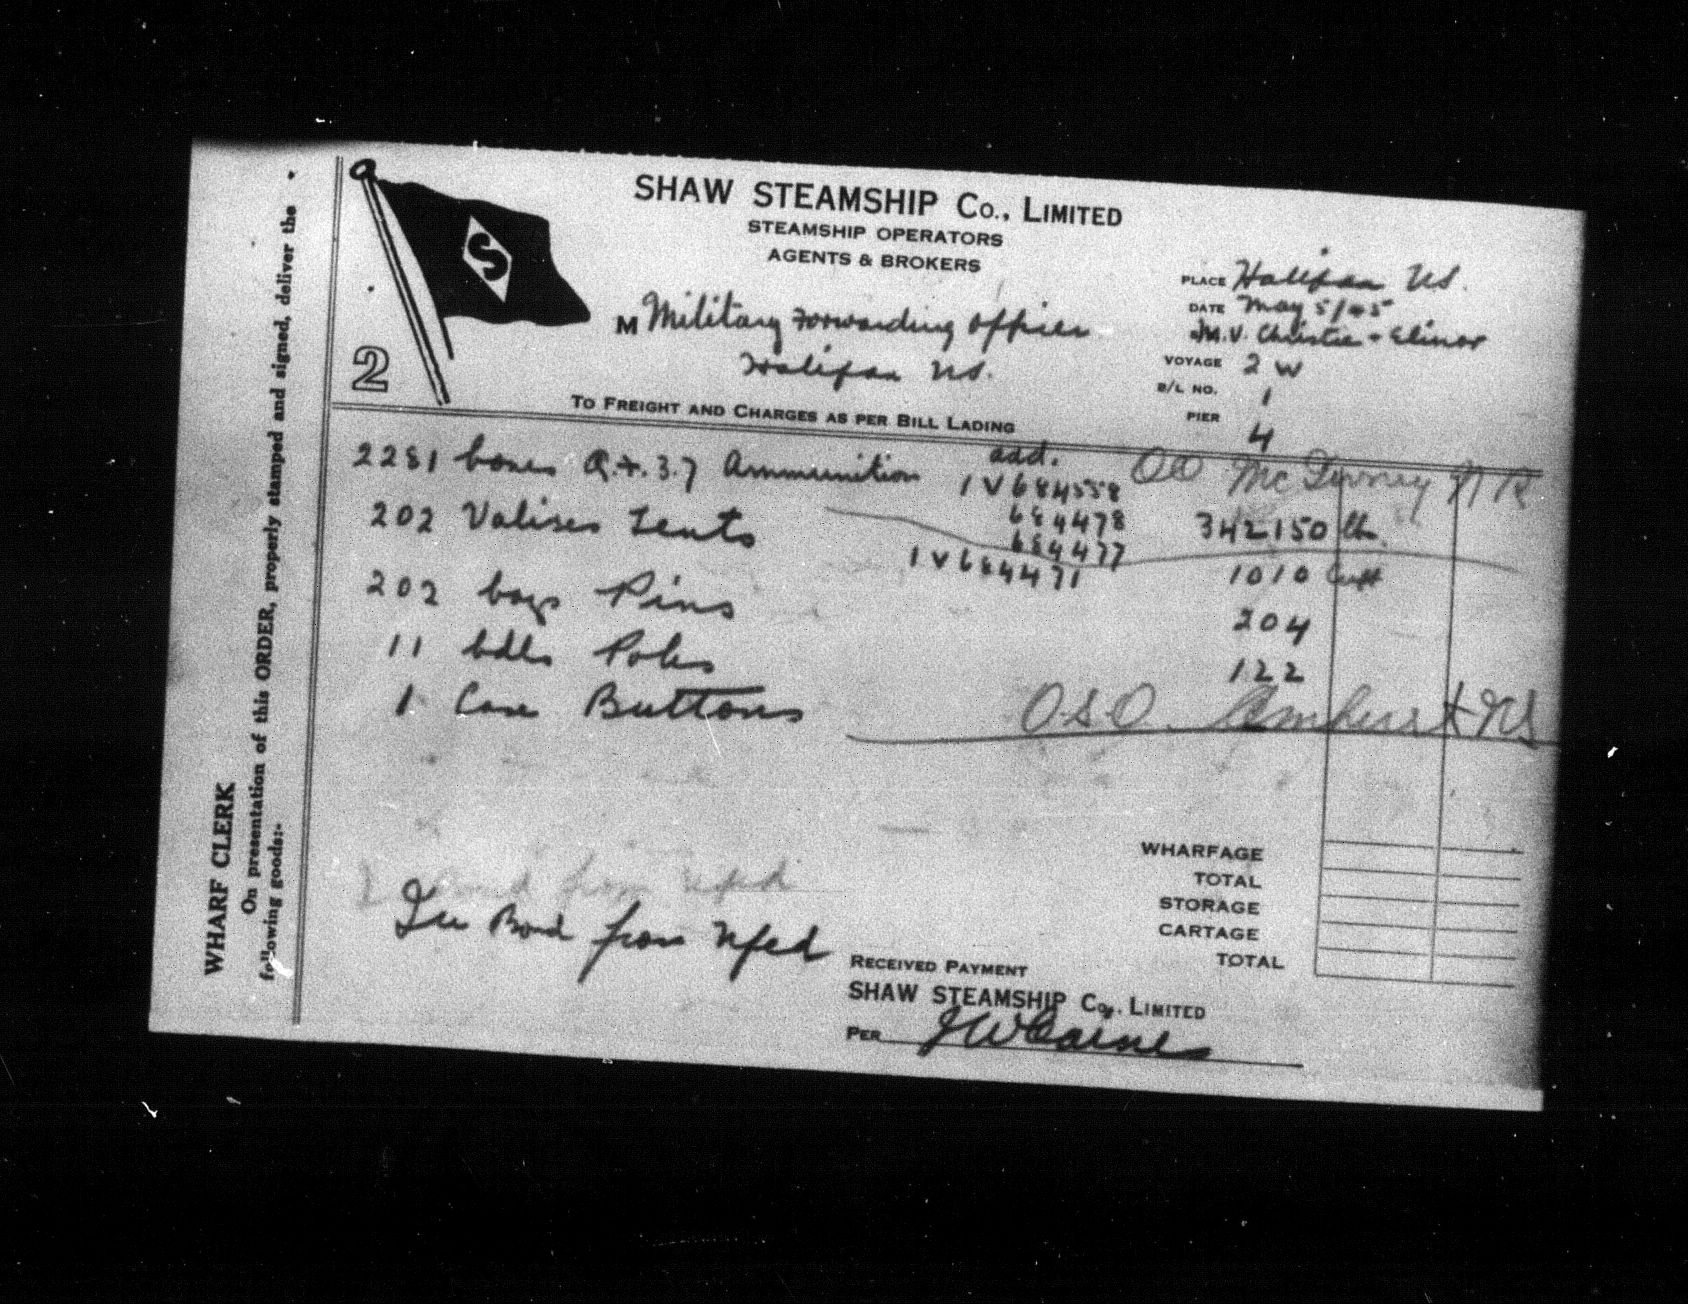 SHAW STEAMSHIP Co., LIMITED
STEAMSHIP OPERATORS
AGENTS & BROKERS
S
2
PLACE Halifax NS.
DATE May 5/45
M.V. Christie & Elinor
VOYAGE 2 W
B/L NO. 1
PIER 4
M Military Forwarding Officer
Halifax NS.
TO FREIGHT AND CHARGES AS PER BILL LADING
2281 boxes Q.F. 3.7 Ammunition add. 1 V 684558 OO McGivney NB
684478 342150 lbs.
202 Valises Tents 684477
1 V 684471 1010 Cuft
202 bags Pins 204
11 bdls Poles 122
1 Case Buttons O.S.O. Amherst NS
Bond from Nfld
In Bond from Nfld
WHARFAGE
TOTAL
STORAGE
CARTAGE
TOTAL
RECEIVED PAYMENT
SHAW STEAMSHIP Co., LIMITED
PER
WHARF CLERK
On presentation of this ORDER, properly stamped and signed, deliver the
following goods:-